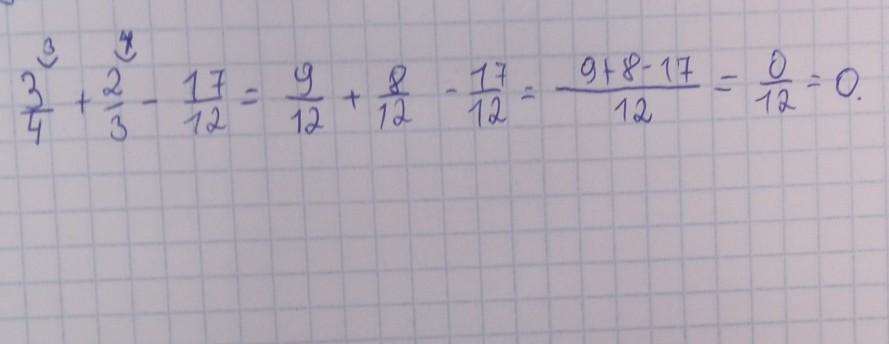 3/4 ³⁾ + 2/3 ⁴⁾ - 17/12 = 9/12 + 8/12 - 17/12 = (9+8-17)/12 = 0/12 = 0.